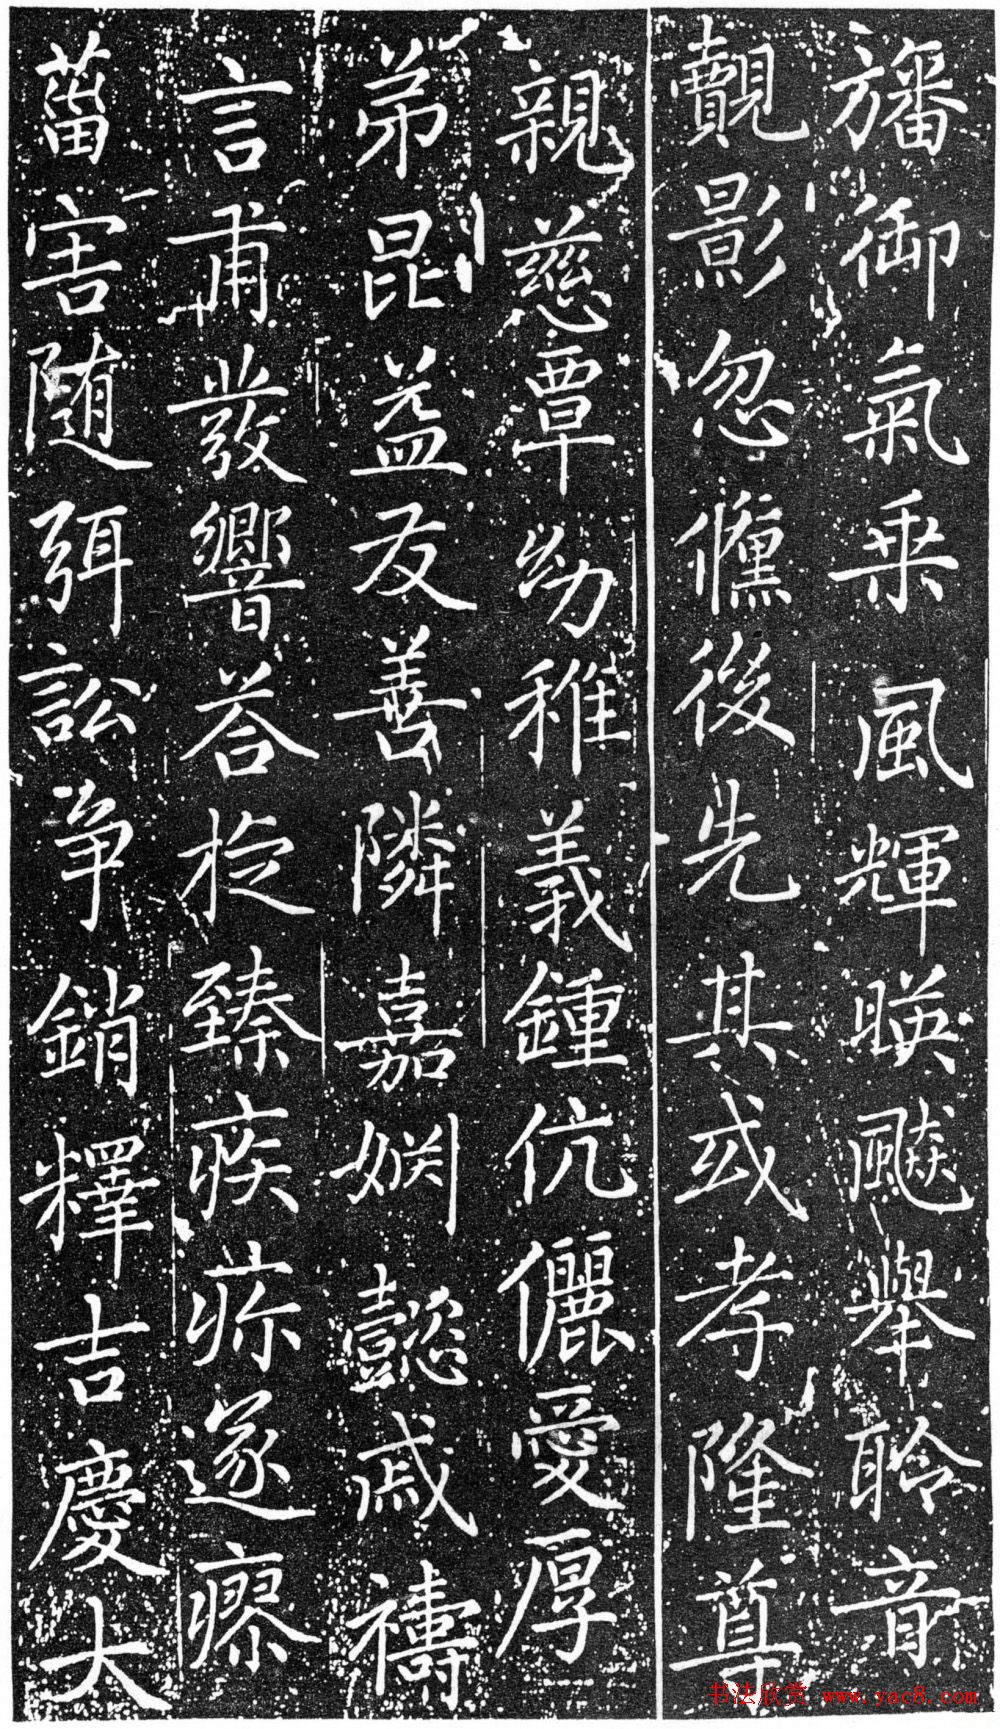 旛御氣乘風輝暎飈舉聆音
覿影忽儵後先其或孝隆尊
親慈覃幼稚義鍾伉儷愛厚
弟昆益友善隣嘉姻懿戚禱
言甫發響荅旋臻疾疢遂瘳
菑害随弭訟争銷釋吉慶大
书法欣赏 www.yac8.com